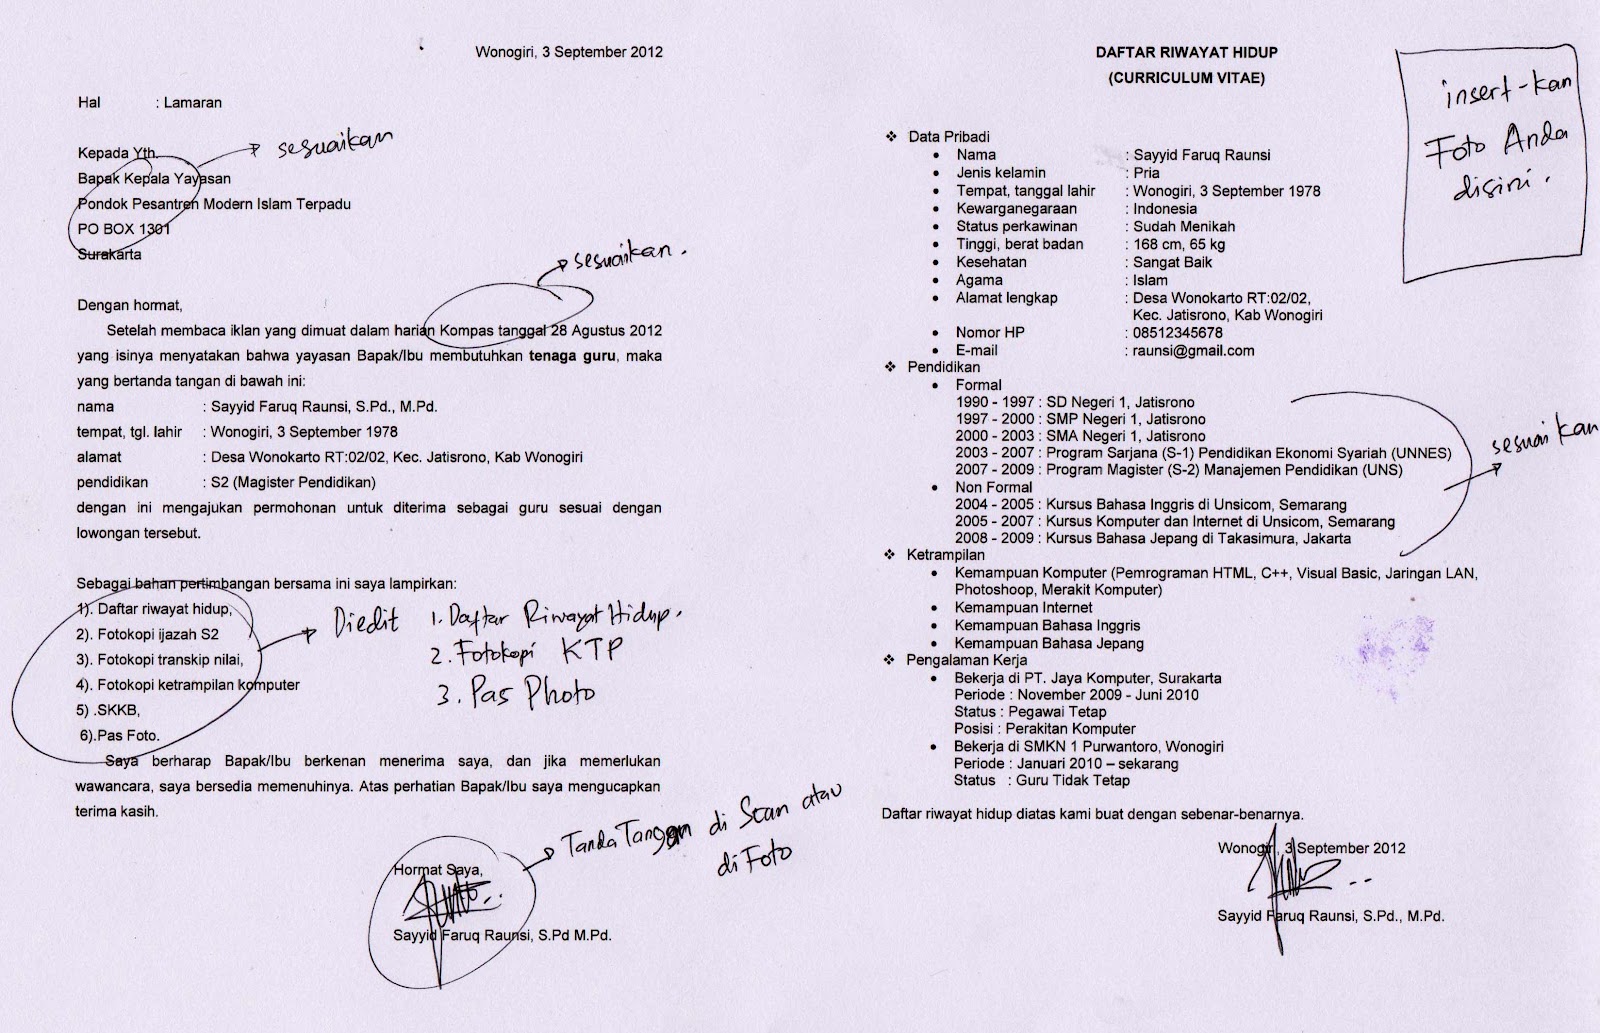 Wonogiri, 3 September 2012
Hal : Lamaran
Kepada Yth.
Bapak Kepala Yayasan
Pondok Pesantren Modern Islam Terpadu
PO BOX 1301
Surakarta
sesuaikan
sesuaikan.
Dengan hormat,
Setelah membaca iklan yang dimuat dalam harian Kompas tanggal 28 Agustus 2012
yang isinya menyatakan bahwa yayasan Bapak/Ibu membutuhkan tenaga guru, maka
yang bertanda tangan di bawah ini:
nama : Sayyid Faruq Raunsi, S.Pd., M.Pd.
tempat, tgl. lahir : Wonogiri, 3 September 1978
alamat : Desa Wonokarto RT:02/02, Kec. Jatisrono, Kab Wonogiri
pendidikan : S2 (Magister Pendidikan)
dengan ini mengajukan permohonan untuk diterima sebagai guru sesuai dengan
lowongan tersebut.
Sebagai bahan pertimbangan bersama ini saya lampirkan:
1). Daftar riwayat hidup,
2). Fotokopi ijazah S2
3). Fotokopi transkip nilai,
4). Fotokopi ketrampilan komputer
5) .SKKB,
6).Pas Foto.
Diedit 1. Daftar Riwayat Hidup.
2. Fotokopi KTP
3. Pas Photo
Saya berharap Bapak/Ibu berkenan menerima saya, dan jika memerlukan
wawancara, saya bersedia memenuhinya. Atas perhatian Bapak/Ibu saya mengucapkan
terima kasih.
Hormat Saya,
Tanda Tangan di Scan atau
di Foto
Sayyid Faruq Raunsi, S.Pd M.Pd.
DAFTAR RIWAYAT HIDUP
(CURRICULUM VITAE)
insert-kan
Foto Anda
disini.
❖ Data Pribadi
• Nama : Sayyid Faruq Raunsi
• Jenis kelamin : Pria
• Tempat, tanggal lahir : Wonogiri, 3 September 1978
• Kewarganegaraan : Indonesia
• Status perkawinan : Sudah Menikah
• Tinggi, berat badan : 168 cm, 65 kg
• Kesehatan : Sangat Baik
• Agama : Islam
• Alamat lengkap : Desa Wonokarto RT:02/02,
Kec. Jatisrono, Kab Wonogiri
• Nomor HP : 08512345678
• E-mail : raunsi@gmail.com
❖ Pendidikan
• Formal
1990 - 1997 : SD Negeri 1, Jatisrono
1997 - 2000 : SMP Negeri 1, Jatisrono
2000 - 2003 : SMA Negeri 1, Jatisrono
2003 - 2007 : Program Sarjana (S-1) Pendidikan Ekonomi Syariah (UNNES)
2007 - 2009 : Program Magister (S-2) Manajemen Pendidikan (UNS)
• Non Formal
2004 - 2005 : Kursus Bahasa Inggris di Unsicom, Semarang
2005 - 2007 : Kursus Komputer dan Internet di Unsicom, Semarang
2008 - 2009 : Kursus Bahasa Jepang di Takasimura, Jakarta
sesuaikan
❖ Ketrampilan
• Kemampuan Komputer (Pemrograman HTML, C++, Visual Basic, Jaringan LAN,
Photoshoop, Merakit Komputer)
• Kemampuan Internet
• Kemampuan Bahasa Inggris
• Kemampuan Bahasa Jepang
❖ Pengalaman Kerja
• Bekerja di PT. Jaya Komputer, Surakarta
Periode : November 2009 - Juni 2010
Status : Pegawai Tetap
Posisi : Perakitan Komputer
• Bekerja di SMKN 1 Purwantoro, Wonogiri
Periode : Januari 2010 – sekarang
Status : Guru Tidak Tetap
Daftar riwayat hidup diatas kami buat dengan sebenar-benarnya.
Wonogiri, 3 September 2012
Sayyid Faruq Raunsi, S.Pd., M.Pd.